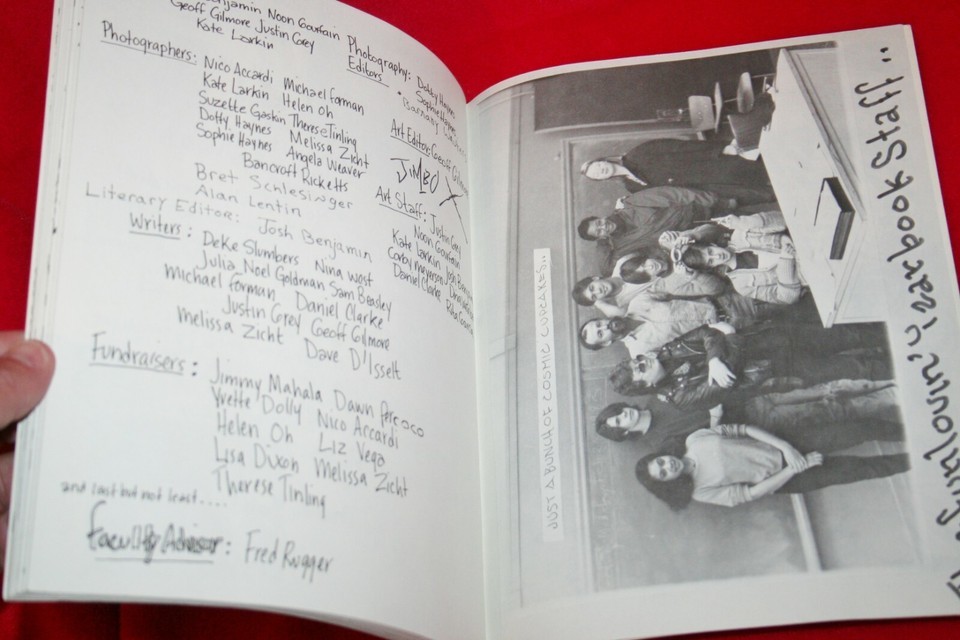 Benjamin Noon Gourfain
Geoff Gilmore Justin Grey
Kate Larkin
Photographers: Nico Accardi Michael Forman
Kate Larkin Helen Oh
Suzette Gaskin Therese Tinling
Dotty Haynes Melissa Zicht
Sophie Haynes Angela Weaver
Bancroft Ricketts
Bret Schlesinger
Alan Lentin
Literary Editor: Josh Benjamin
Writers: Deke Slumbers Nina Wost
Julia Noel Goldman Sam Beasley
Michael Forman Daniel Clarke
Justin Grey Geoff Gilmore
Melissa Zicht Dave D'Isselt
Fundraisers: Jimmy Mahala Dawn Percoco
Yvette Dolly Nico Accardi
Helen Oh Liz Vega
Lisa Dixon Melissa Zicht
Therese Tinling
and last but not least....
Faculty Advisor: Fred Rugger
Photography Editors: Dotty Haynes
Sophie Haynes
Art Editor: Geoff Gilmore
JIMBO
Art Staff: Justin Grey
Noon Gourfain
Kate Larkin Josh
Corby Meyerson
Daniel Clarke
JUST A BUNCH OF COSMIC CUPCAKES..
funlovin' yearbook Staff..